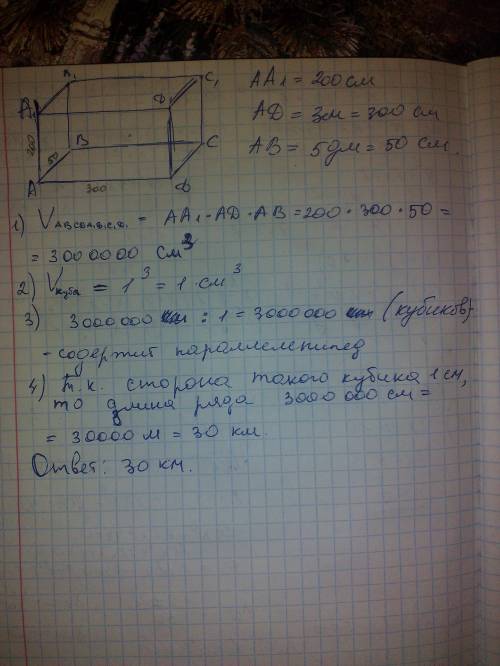 A₁ C₁
A₁ D₁
200 50 B C
A 300 D
AA₁ = 200 см
AD = 3м = 300 см
AB = 5дм = 50 см.
1) V ABCDA₁B₁C₁D₁ = AA₁ · AD · AB = 200 · 300 · 50 =
= 3000000 см³
2) Vкуба = 1³ = 1 см³
3) 3000000 : 1 = 3000000 (кубиков)
- содержит параллелепипед
4) т.к. сторона такого кубика 1 см,
то длина ряда 3000 000 см =
= 30000 м = 30 км.
Ответ: 30 км.